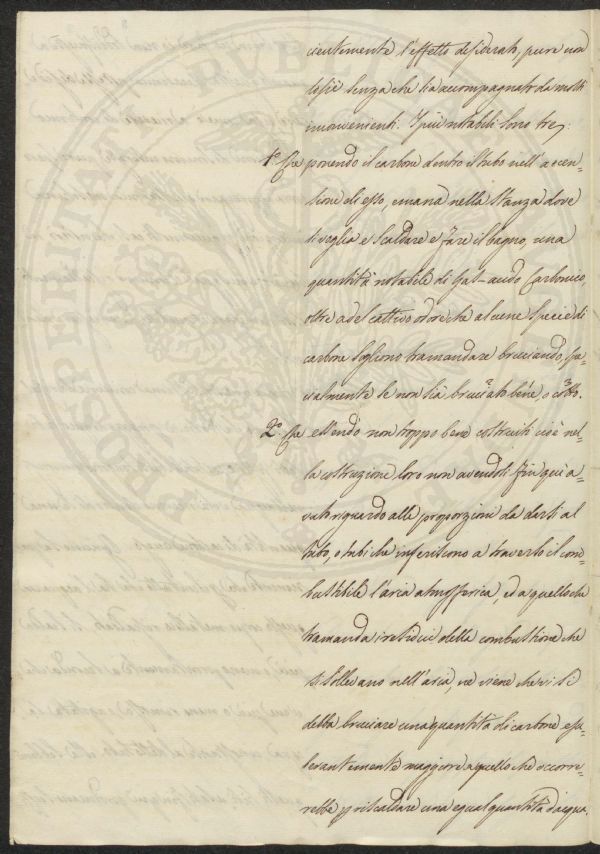 cientemente l'effetto desiderato, pure non
lo è senza che sia accompagnato da molti
inconvenienti. I più notabili sono tre:
1.º Che ponendo il carbone dentro il tubo nell'accen-
sione di esso, emana nella stanza dove
si voglia e scaldare e fare il bagno, una
quantità notabile di Gas-acido Carbonico,
oltre a del cattivo odore che alcune specie di
carbone sogliono tramandare bruciando, spe-
cialmente se non sia bruciato bene o cotto.
2.º Che essendo non troppo bene costruiti cioè nel-
la costruzione loro non avendosi fin qui a-
vuto riguardo alle proporzioni da darsi al
tubo, o tubi che inseriscono a traverso il com-
bustibile l'aria atmosferica, ed a quello che
tramanda i residui della combustione che
si sollevano nell'aria, ne viene che vi si
debba bruciare una quantità di carbone esu-
berantemente maggiore a quello che occorre-
rebbe p riscaldare una egual quantità d'acqua.
PROSPERITATI PVBLICAE